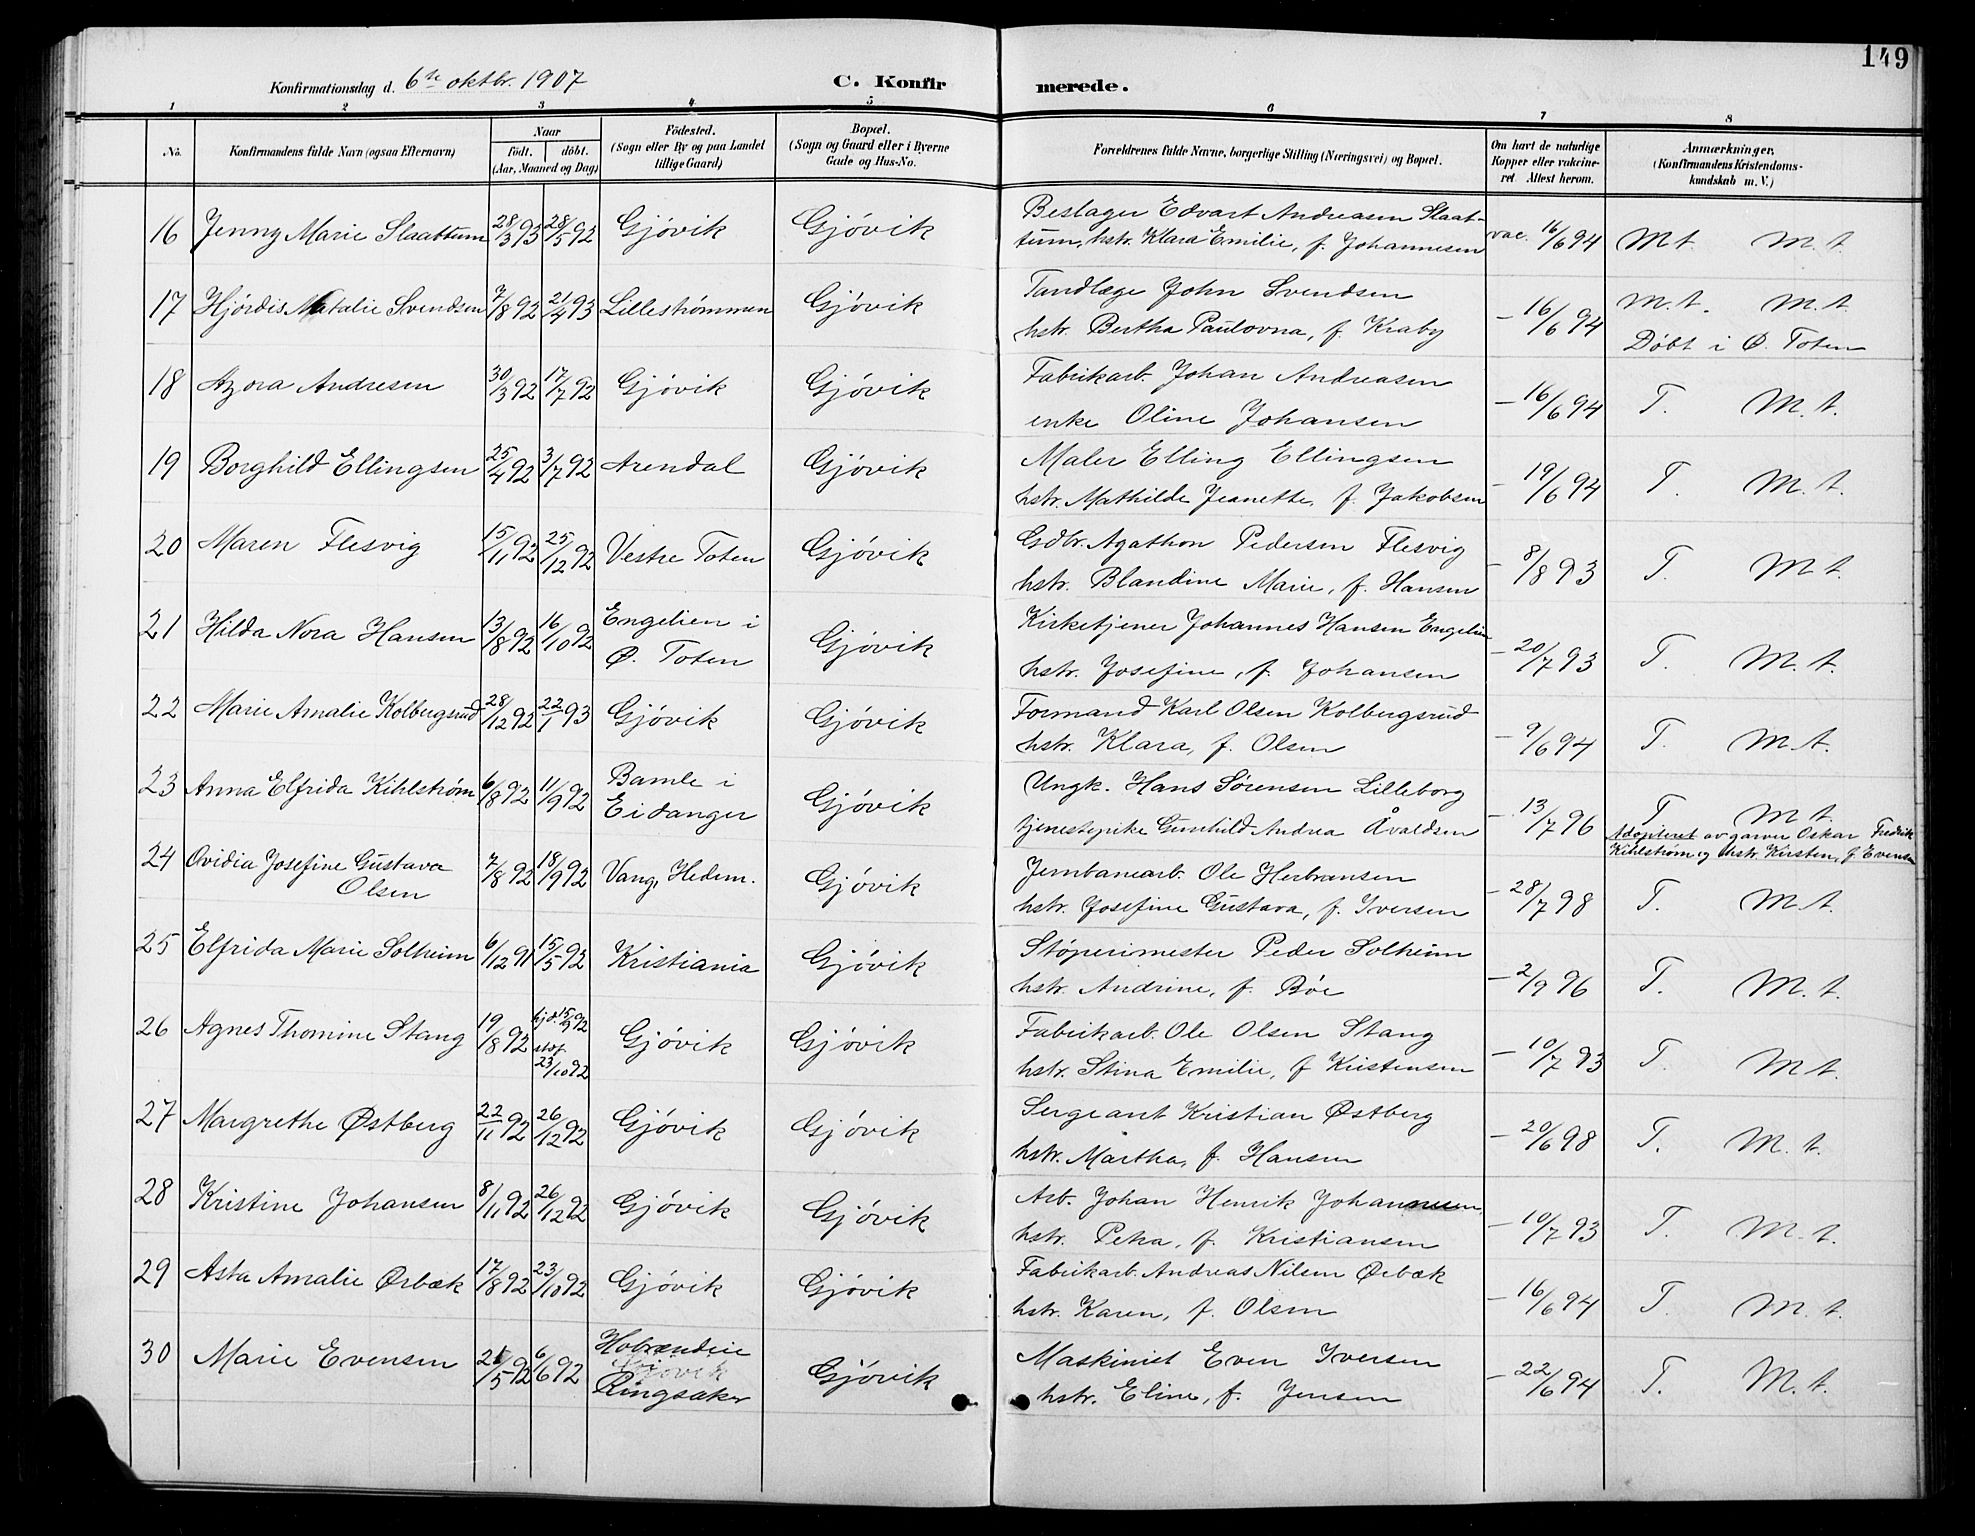 149
Konfirmationsdag d. 6te oktbr. 1907
C. Konfirmerede.
1 2 3 4 5 6 7 8
No.
Konfirmandens fulde Navn (ogsaa Efternavn)
Naar
Födt. döbt.
(Aar, Maaned og Dag)
Födested.
(Sogn eller By og paa Landet
tillige Gaard)
Bopæl.
(Sogn og Gaard eller i Byerne
Gade og Hus-No.
Forældrenes fulde Navne, borgerlige Stilling (Næringsvei) og Bopæl.
Om havt de naturlige
Kopper eller vakcine-
ret Attest herom.
Anmærkninger,
(Konfirmandens Kristendoms-
kundskab m. V.)
16 Jenny Marie Slaattum 28/3 93 28/5 92 Gjövik Gjövik Beslager Edvart Andreasen Slaat-
tum, hstr. Klara Emilie, f. Johannesen vac. 16/6 94 M t. M. t.
17 Hjördis Natalie Svendsen 7/8 92 21/4 93 Lillestrømmen Gjövik Tandlæge John Svendsen
hstr. Bertha Paulovna, f. Kraby - 16/6 94 M. t. M. t.
Döbt i Ø. Toten
18 Azora Andresen 30/3 92 17/7 92 Gjövik Gjövik Fabrikarb. Johan Andreasen
enke Oline Johansen - 16/6 94 T. M. t.
19 Borghild Ellingsen 25/4 92 3/7 92 Arendal Gjövik Maler Elling Ellingsen
hstr. Mathilde Jeanette, f. Jakobsen - 19/6 94 T. M. t.
20 Maren Flesvig 15/11 92 25/12 92 Vestre Toten Gjövik Gdbr. Agathon Pedersen Flesvig
hstr. Blandine Marie, f. Hansen - 8/8 93 T. M t.
21 Hilda Nora Hansen 13/8 92 16/10 92 Engelien i
Ø. Toten Gjövik Kirketjener Johannes Hansen Engelien
hstr. Josefine, f. Johansen - 20/7 93 T. M. t.
22 Marie Amalie Kolbergsrud 28/12 92 22/1 93 Gjövik Gjövik Formand Karl Olsen Kolbergsrud
hstr. Klara, f. Olsen - 9/6 94 T. M. t.
23 Anna Elfrida Kihlstrøm 6/8 92 11/9 92 Bamle i
Eidanger Gjövik Ungk. Hans Sørensen Lilleborg
tjenestepike Gunhild Andrea Åvaldsen - 13/7 96 T M t.
Adopteret av garver Oskar Fredrik
Kihlstrøm og hstr. Kirsten, f. Evensen
24 Ovidia Josefine Gustava
Olsen 7/8 92 18/9 92 Vang, Hedem. Gjövik Jernbanearb. Ole Herbransen
hstr. Josefine Gustava, f. Iversen - 28/7 98 T. M. t.
25 Elfrida Marie Solheim 6/12 91 15/5 92 Kristiania Gjövik Støperimester Peder Solheim
hstr. Andrine, f. Böe - 2/9 96 T. M. t.
26 Agnes Thomine Stang 19/8 92 hjd. 15/9 92
stdf
23/10 92 Gjövik Gjövik Fabrikarb. Ole Olsen Stang
hstr. Stina Emilie, f Kristensen - 10/7 93 T. M t.
27 Margrethe Østberg 22/11 92 26/12 92 Gjövik Gjövik Sergeant Kristian Østberg
hstr. Martha, f. Hansen - 20/6 98 T. M. t.
28 Kristine Johansen 8/11 92 26/12 92 Gjövik Gjövik Arb. Johan Henrik Johannesen,
hstr. Petra, f. Kristiansen - 10/7 93 T. M. t.
29 Asta Amalie Ørbæk 17/8 92 23/10 92 Gjövik Gjövik Fabrikarb. Andreas Nilsen Ørbæk
hstr. Karen, f. Olsen - 16/6 94 T. M. t.
30 Marie Evensen 21/5 92 6/6 92 Hobrændeie
Gjövik
Ringsaker Gjövik Maskinist Even Iversen
hstr. Eline, f. Jensen - 22/6 94 T. M. t.